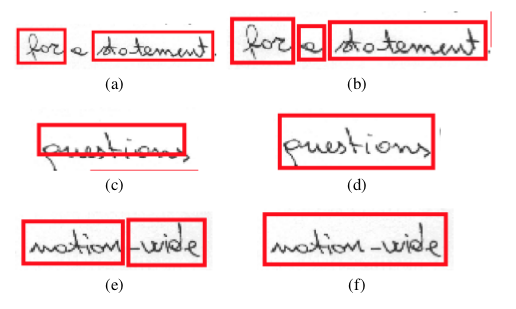 for a statement. for a statement.
(a) (b)
questions questions
(c) (d)
nation-wide nation-wide
(e) (f)